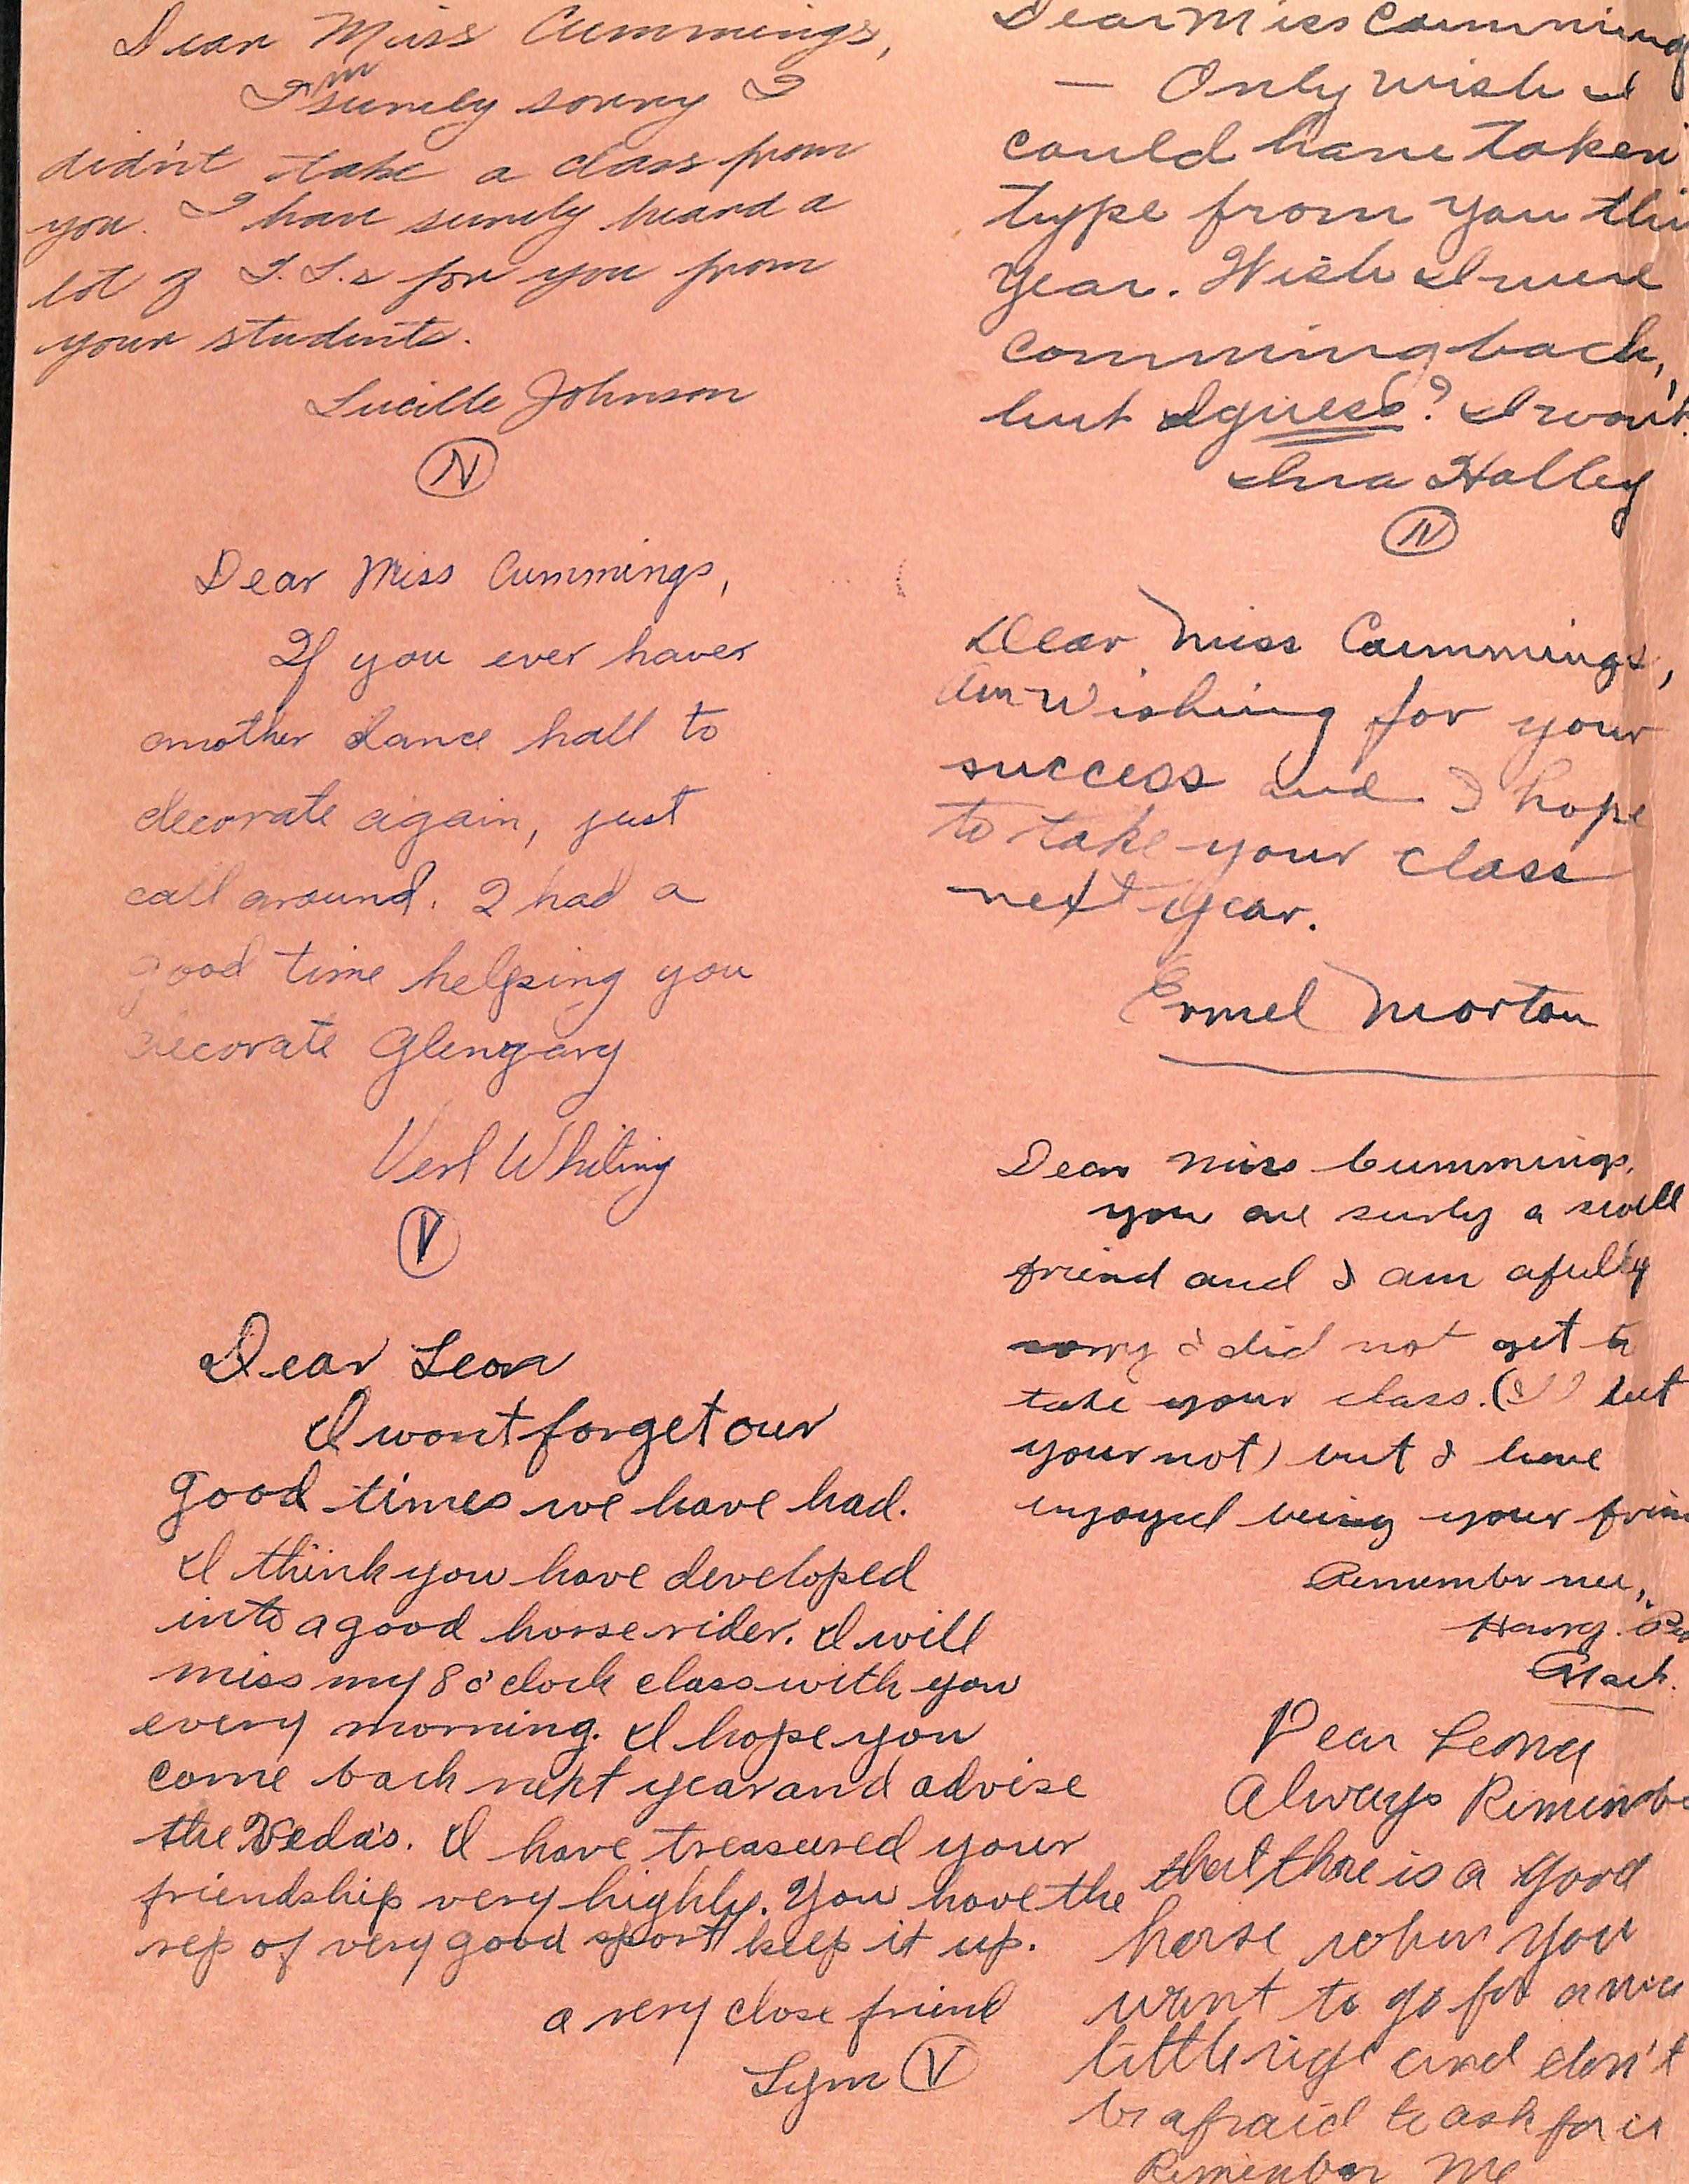 Dear Miss Cummings,
I'm surely sorry I
didn't take a class from
you. I have surely heard a
lot of T.L.s for you from
your students.
Lucille Johnson
N
Dear Miss Cummings,
If you ever haver
another dance hall to
decorate again, just
call around. I had a
good time helping you
decorate Glengary
Verl Whiting
V
Dear Leon
I wont forget our
good times we have had.
I think you have developed
into a good horse rider. I will
miss my 8 o'clock class with you
every morning. I hope you
come back next year and advise
the Veda's. I have treasured your
friendship very highly. You have the
rep of very good sport keep it up.
a very close friend
Lym V
Dear Miss Cumming
— Only wish I
could have taken
type from you thi
year. Wish I were
comming back,
but I guess? I won't.
Ina Halley
N
Dear Miss Cummings,
Am wishing for your
success and I hope
to take your class
next year.
Ermel Morton
Dear Miss Cummings,
you are surly a swell
friend and I am afully
sorry I did not get to
take your class. but
your not) but I have
injoyed being your frien
Remembr me,
Harry
Dear Leona
Always Rememb
that there is a good
horse when you
want to go for a nice
little and don't
be afraid to ask for it
Remember Me